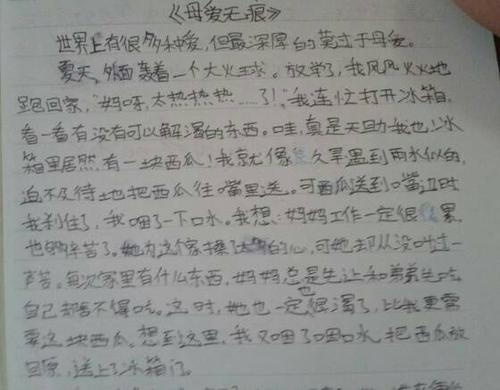 《母爱无痕》
世界上有很多种爱，但最深厚的莫过于母爱。
夏天，外面轰着一个大火球。放学了，我风风火火地
跑回家，“妈呀，太热热热……了！”我连忙打开冰箱，
看一看有没有可以解渴的东西。哇，真是天助我也！冰
箱里居然有一块西瓜！我就像久旱遇到雨水似的，
迫不及待地把西瓜往嘴里送。可西瓜送到嘴边时
我刹住了，我咽了一下口水。我想：妈妈工作一定很累，
也够辛苦了。她为这个家操了的心，可她却从没叫过一
声苦。每次家里有什么东西，妈妈总是先让和弟弟先吃
自己却舍不得吃。这时，她也一定很渴了，比我更需
要这块西瓜。想到这里，我又咽了咽口水，把西瓜放
回原，送上了冰箱门。